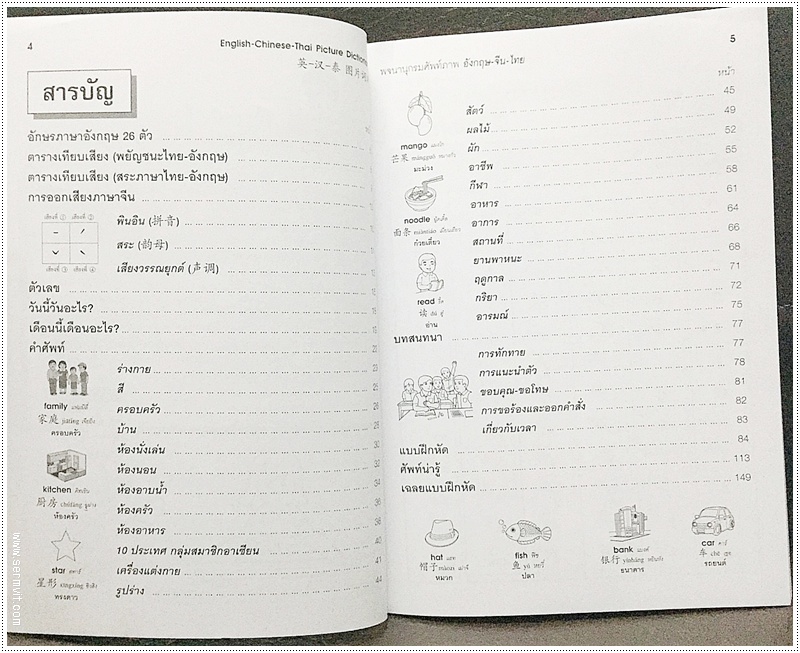 4
English-Chinese-Thai Picture Dictionary
英-汉-泰 图片
สารบัญ
อักษรภาษาอังกฤษ 26 ตัว
ตารางเทียบเสียง (พยัญชนะไทย-อังกฤษ)
ตารางเทียบเสียง (สระภาษาไทย-อังกฤษ)
การออกเสียงภาษาจีน
เสียงที่ ① เสียงที่ ②
เสียงที่ ③ เสียงที่ ④
พินอิน (拼音)
สระ (韵母)
เสียงวรรณยุกต์ (声调)
ตัวเลข
วันนี้วันอะไร?
เดือนนี้เดือนอะไร?
คำศัพท์
family
家庭 jiātíng
ครอบครัว
kitchen
厨房 chúfáng
ห้องครัว
star สตาร์
星形 xīngxíng
ทรงดาว
ร่างกาย
สี
ครอบครัว
บ้าน
ห้องนั่งเล่น 30
ห้องนอน 32
ห้องอาบน้ำ 34
ห้องครัว 36
ห้องอาหาร 38
10 ประเทศ กลุ่มสมาชิกอาเซียน 40
เครื่องแต่งกาย 41
รูปร่าง 44
www.serivit.com
5
พจนานุกรมศัพท์ภาพ อังกฤษ-จีน-ไทย
หน้า
mango แมงโก
芒果 mángguǒ
มะม่วง
noodle นู้ดเดิ้ล
面条 miàntiáo
ก๋วยเตี๋ยว
read รี้ด
读 dú ตู๋
อ่าน
สัตว์ 45
ผลไม้ 49
ผัก 52
อาชีพ 55
กีฬา 58
อาหาร 61
อาการ 64
สถานที่ 66
ยานพาหนะ 68
ฤดูกาล 71
กริยา 72
อารมณ์ 75
บทสนทนา 77
การทักทาย 77
การแนะนำตัว 78
ขอบคุณ-ขอโทษ 81
การขอร้องและออกคำสั่ง 82
เกี่ยวกับเวลา 83
แบบฝึกหัด 84
ศัพท์น่ารู้ 113
เฉลยแบบฝึกหัด 149
hat แฮท
帽子 màozi
หมวก
fish ฟิช
鱼 yú หยวี๋
ปลา
bank แบงค์
银行 yínháng
ธนาคาร
car คาร์
车 chē
รถยนต์